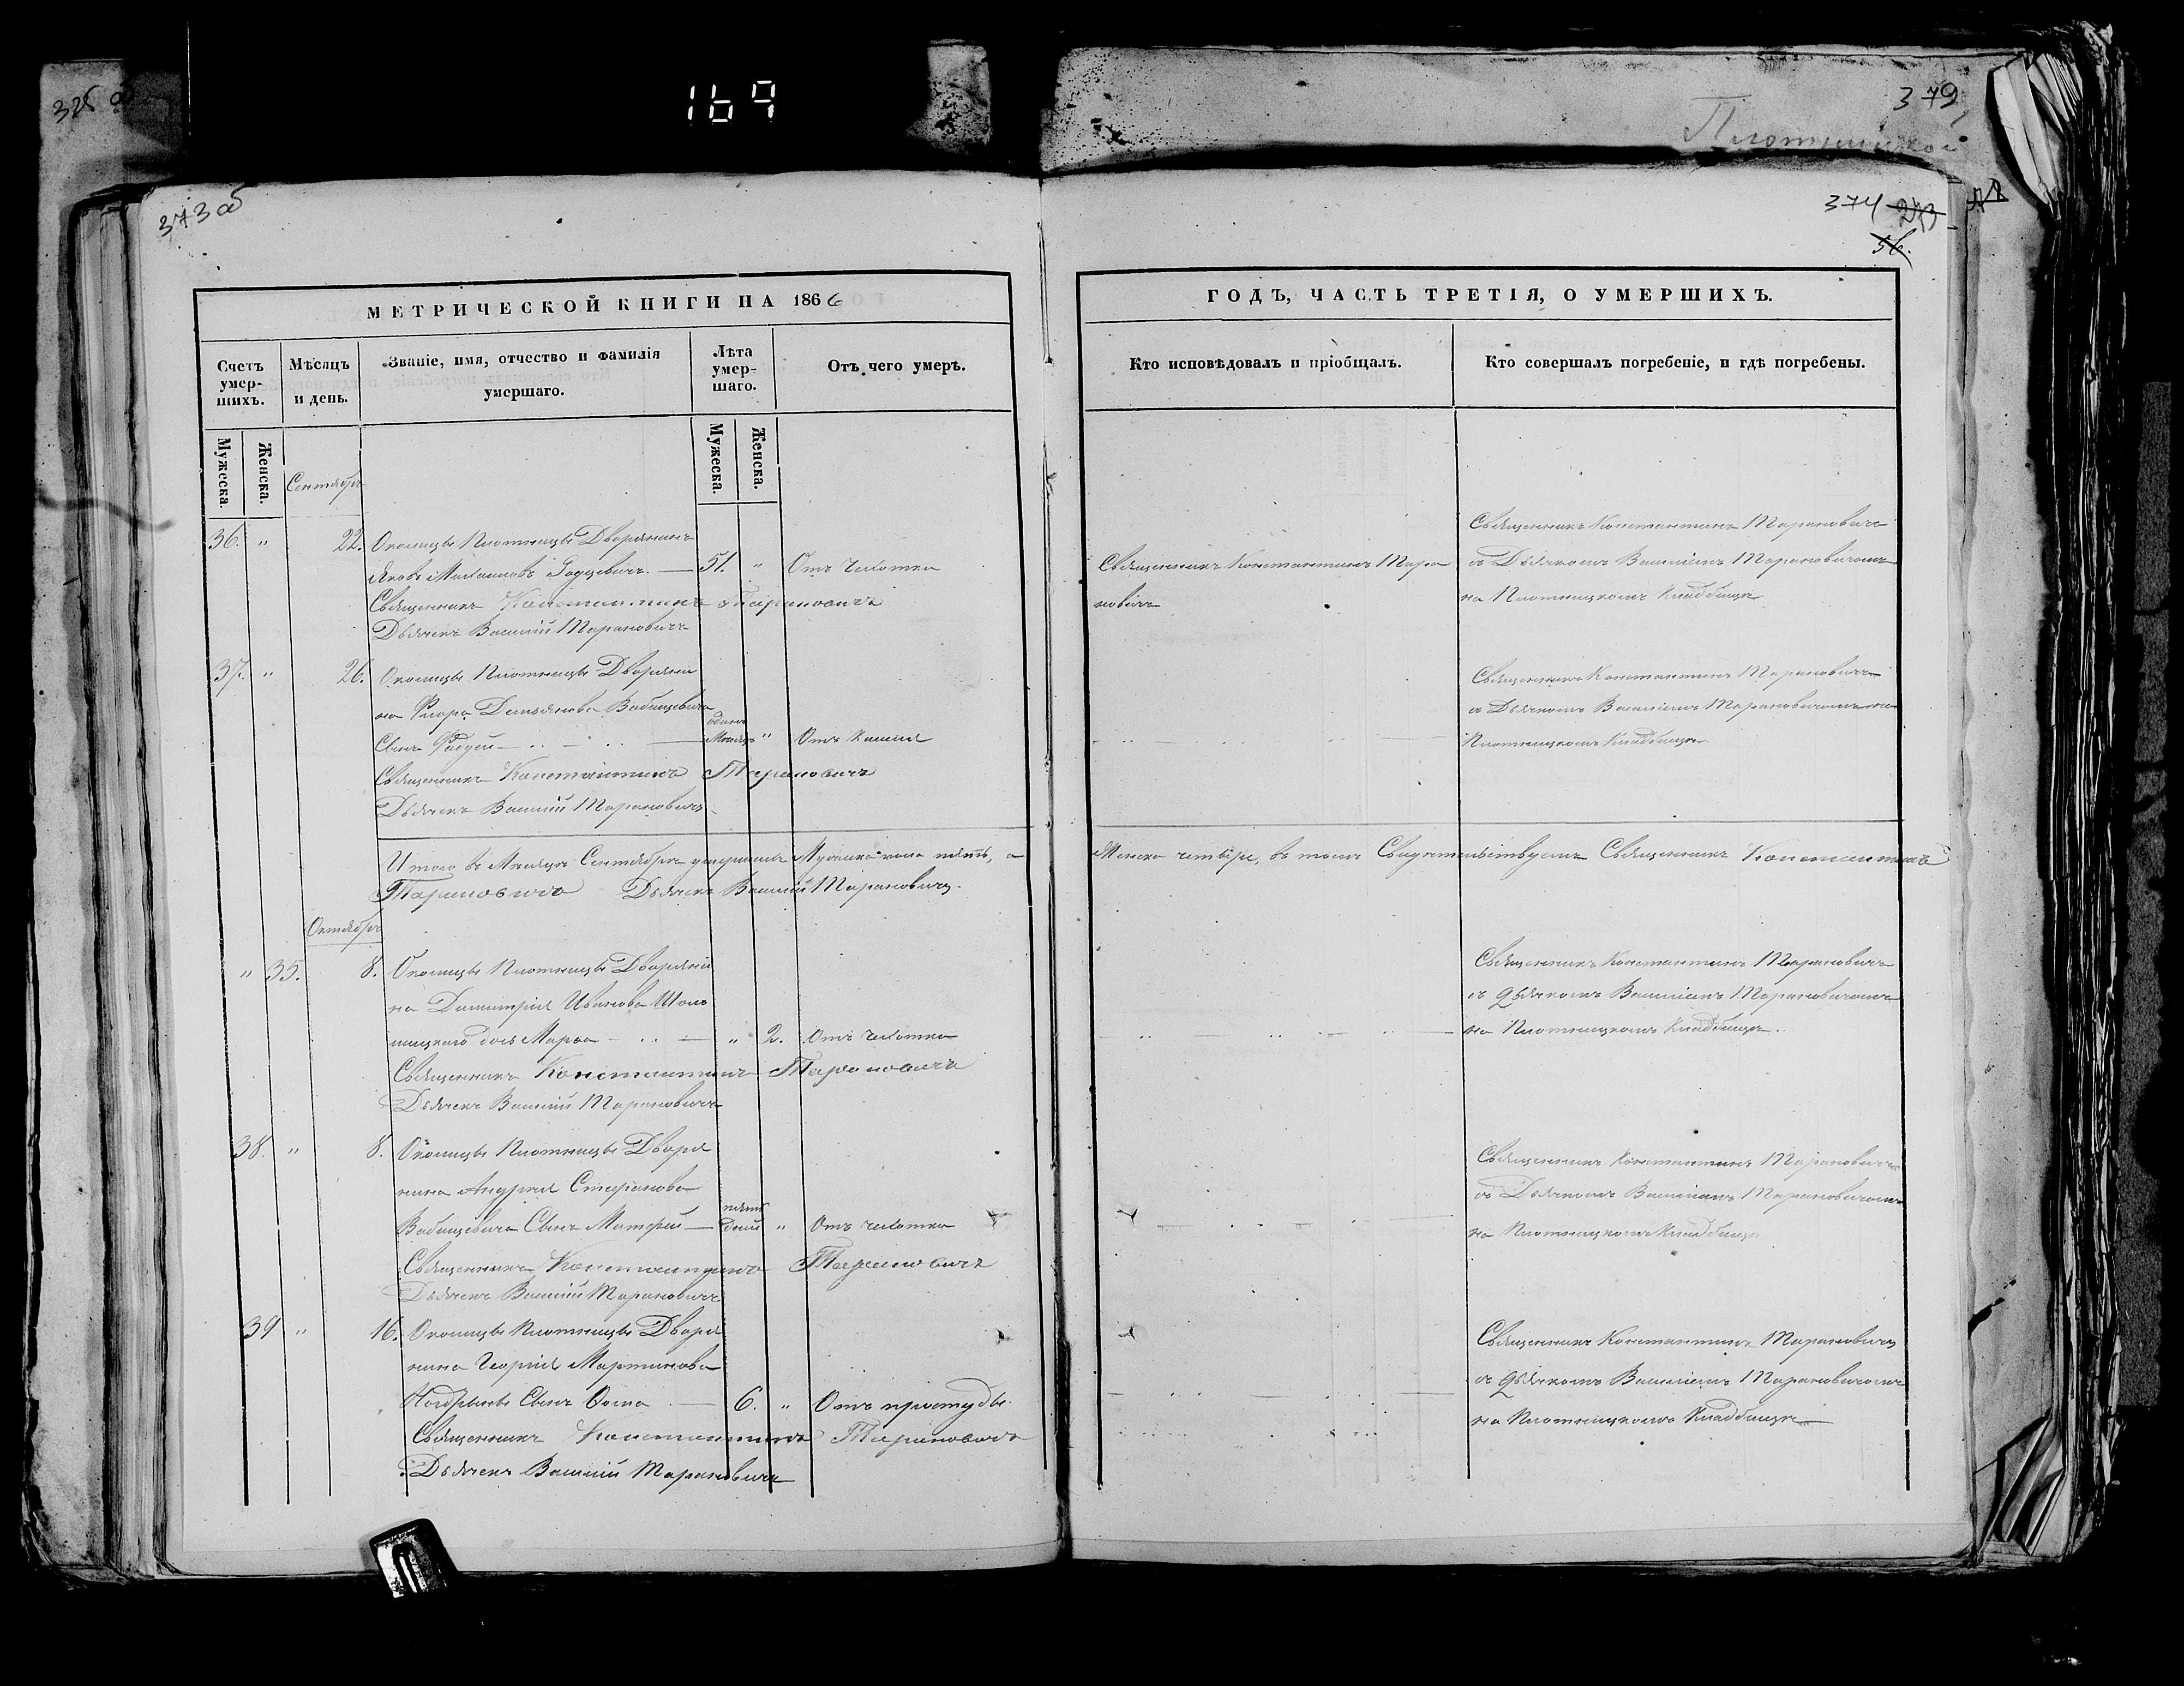 325 об
169
379
373 об
374 273
56.
МЕТРИЧЕСКОЙ КНИГИ НА 1866
Счетъ умер-шихъ.
Мѣсяцъ и день.
Званіе, имя, отчество и фамилія умершаго.
Лѣта умер-шаго.
Отъ чего умеръ.
Мужеска.
Женска.
Мужеска.
Женска.
Сентябрь
36. " 22. Околицы Плотницы Дворянинъ
Яковъ 51. " Отъ чахотки
Священникъ Константинъ Тарановичъ
Дьячекъ Василій Тарановичъ
37. " 26. Околицы Плотницы Дворяни
на Флора Демьянова Вабищевича
одинъ
Сынъ Фадей мѣсяцъ " Отъ кашля
Священникъ Константинъ Тарановичъ
Дьячекъ Василій Тарановичъ
Итого въ Мѣсяцѣ Сентябрѣ умершихъ Мужеска пола пять, а
Тарановичъ Дьячекъ Василій Тарановичъ.
Октябрь
" 35. 8. Околицы Плотницы Дворяни
на Димитрія Иванова Шоло
мицкаго дочь Марѳа " 2. Отъ чахотки
Священникъ Константинъ Тарановичъ
Дьячекъ Василій Тарановичъ
38. " 8. Околицы Плотницы Дворя
нина Андрея Стефанова
пять
Вабищевича Сынъ Матфей дней " Отъ чахотки
Священникъ Константинъ Тарановичъ
Дьячекъ Василій Тарановичъ
39 " 16. Околицы Плотницы Дворя
нина Георгія Мартинова
Сынъ Ѳома 6. " Отъ простуды.
Священникъ Константинъ Тарановичъ
Дьячекъ Василій Тарановичъ
ГОДЪ, ЧАСТЬ ТРЕТІЯ, О УМЕРШИХЪ.
Кто исповѣдовалъ и пріобщалъ.
Кто совершалъ погребеніе, и гдѣ погребены.
Священникъ Константинъ Тарановичъ
Священникъ Константинъ Тара съ Дьячкомъ Василіемъ Тарановичомъ
новичъ на Плотницкомъ Кладбищѣ
Священникъ Константинъ Тарановичъ
съ Дьячкомъ Василіемъ Тарановичомъ на
Плотницкомъ Кладбищѣ
Женска четыре, въ томъ Свидетельствуемъ Священникъ Константинъ
Священникъ Константинъ Тарановичъ
съ Дьячкомъ Василіемъ Тарановичомъ
на Плотницкомъ Кладбищѣ.
Священникъ Константинъ Тарановичъ
съ Дьячкомъ Василіемъ Тарановичомъ
на Плотницкомъ Кладбищѣ
Священникъ Константинъ Тарановичъ
съ Дьячкомъ Василіемъ Тарановичомъ
на Плотницкомъ Кладбищѣ